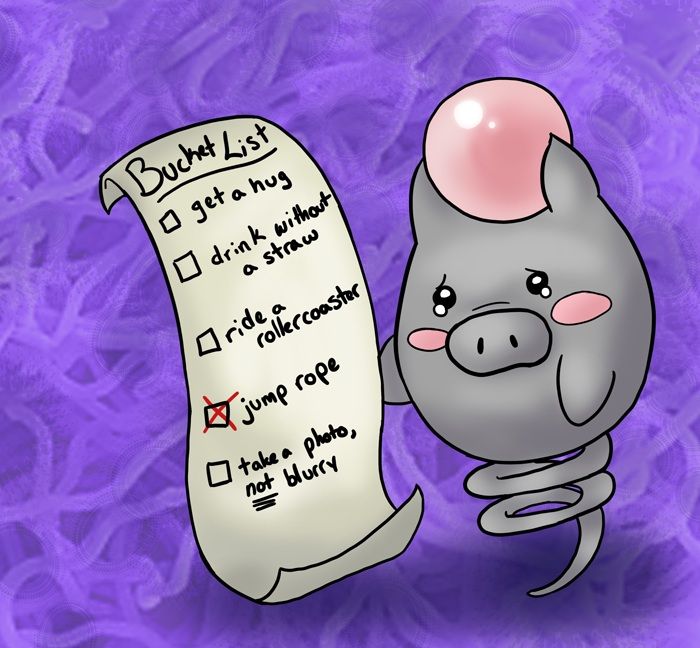 Bucket List
get a hug
drink without
a straw
ride a
rollercoaster
jump rope
take a photo,
not blurry